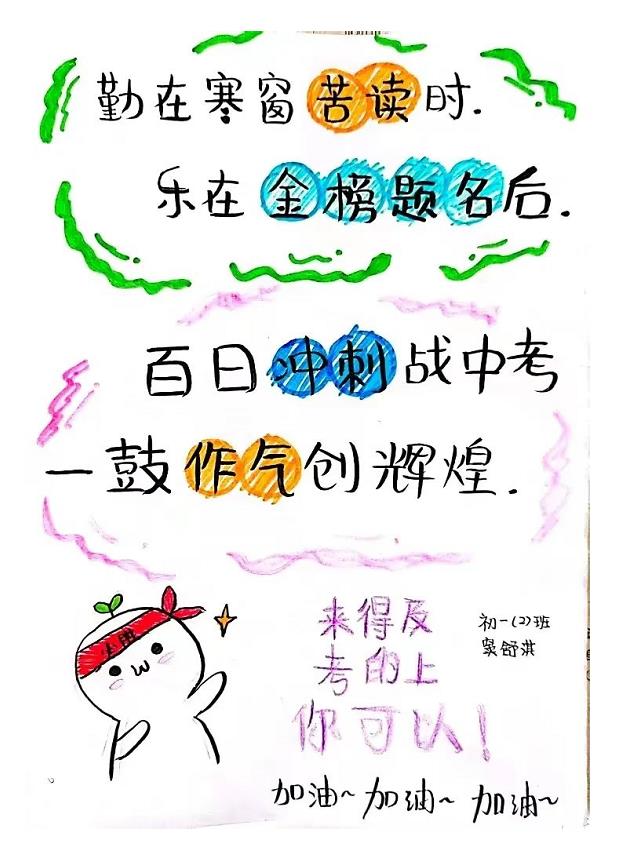 勤在寒窗苦读时.
乐在金榜题名后.
百日冲刺战中考
一鼓作气创辉煌.
来得及
考的上
你可以！
初一(2)班
加油~加油~加油~